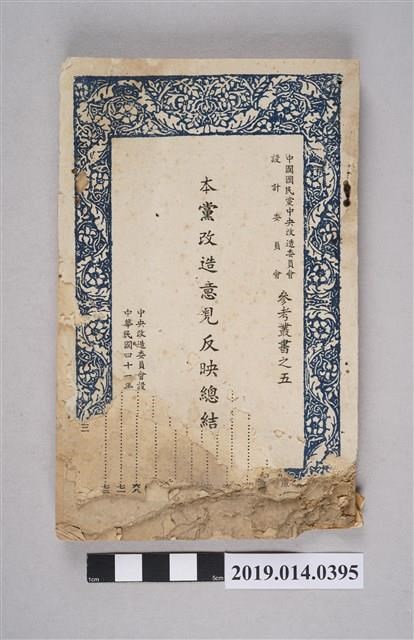 中國國民黨中央改造委員會
設計委員會
參考叢書之五
本黨改造意見反映總結
中央改造委員會設
中華民國四十一年
六八
七一
七三
1cm
5cm
2019.014.0395